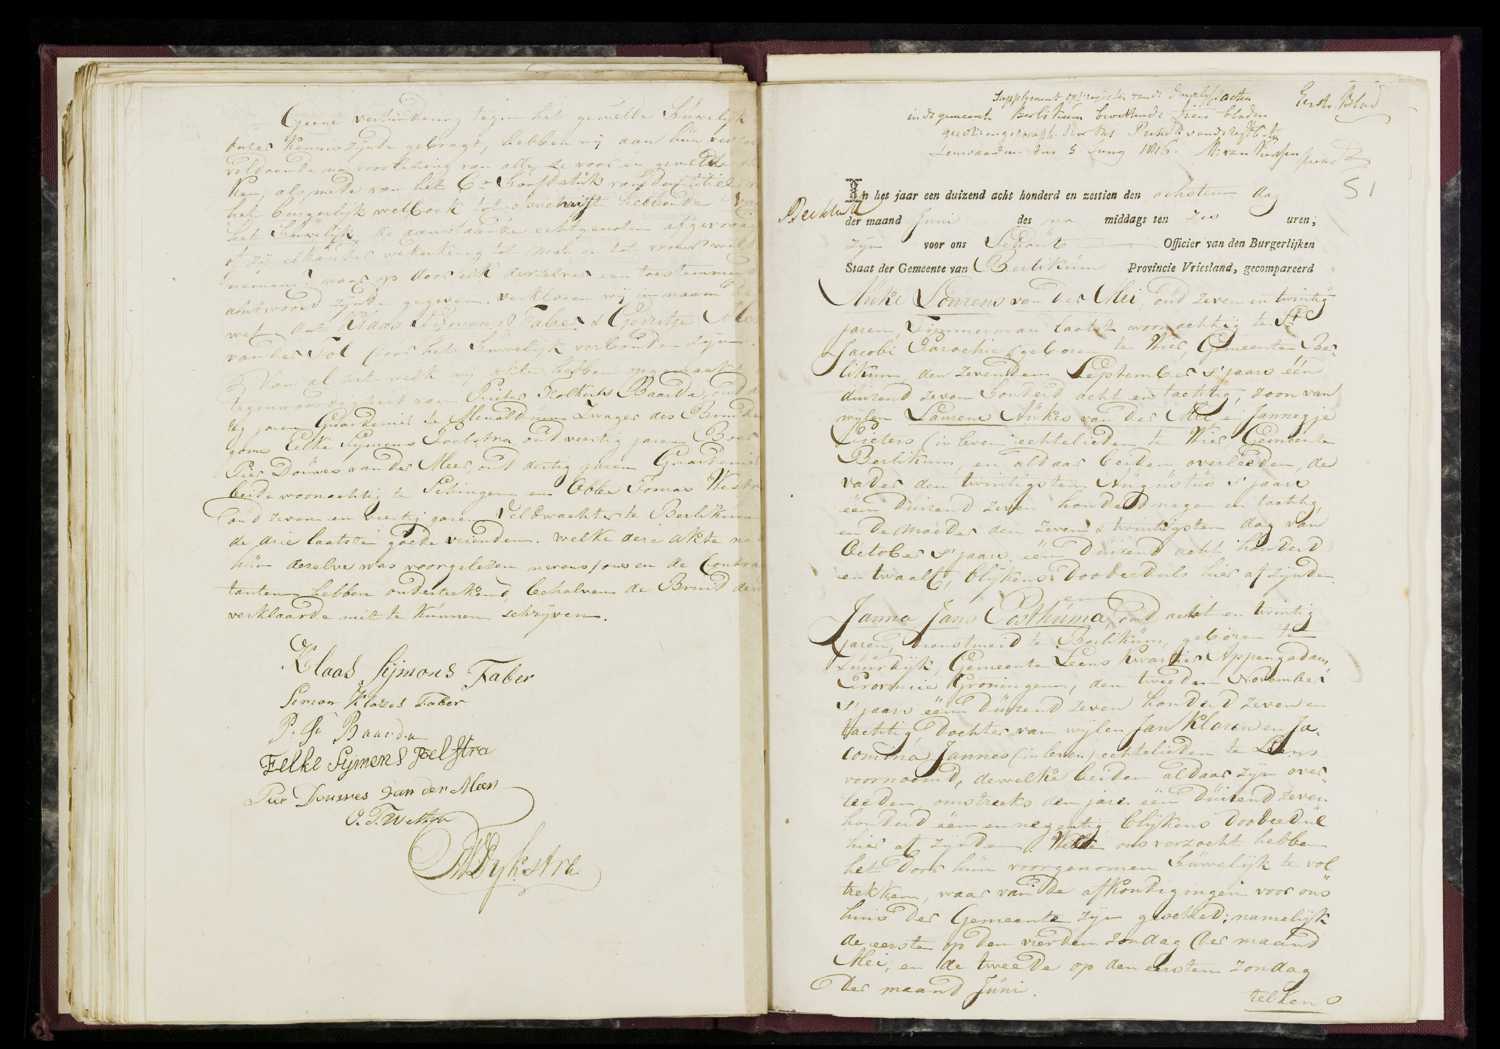 Geene verhindering tegen het gemelde Huwelijk
onzer kennis zijnde gebragt, hebben wij aan hun
voldoende na voorlezing van alle de voor en gemelde
als mede van het 6e Hoofdstuk van den titel
het burgerlijk wetboek tot opschrift hebbende
het Huwelijk, de aanstaande echtgenoten afgevraagd
of zij elkander
nemen, waar op door elk derzelver een toestemmend
antwoord zijnde gegeven, verklaren wij in naam der
wet, dat Klaas Symons Faber & Geertje
van der Tol door het Huwelijk verbonden zijn.
Van al het welk wij akte hebben opgemaakt in
tegenwoordigheid van Pieter Baarda, oud
jaren, Gardenier te Menaldum, Zwager des Bruide-
goms, Eelke Sijmens Poelstra oud veertig jaren, Boer
Pier Douwes van der Meer, oud dertig jaren Gardenier
beide woonachtig te en Obbe
oud zeven en veertig jaren Veldwachter te Berlikum
de drie laatsten goede vrienden. Welke deze akte na
hun dezelve was voorgelezen nevens ons en de Contra
tanten hebben onderteekend behalven de Bruid die
verklaarde niet te kunnen schrijven.
Klaas Sijmons Faber
Simon Klases Faber
Baarda
Eelke Sijmens Poelstra
Pier Douwes van der Meer
Dijkstra
Supplement register van de acten
in de gemeente Berlikum
Leeuwarden den 5 Juny 1816.
Eerste Blad
51
In het jaar een duizend acht honderd en zestien den achtsten dag
der maand Juni des na middags ten zes uren;
zijn voor ons Schout Officier van den Burgerlijken
Staat der Gemeente van Berlikum Provincie Vriesland, gecompareerd
Anke Lourens van der Mei oud zeven en twintig
jaren, Timmerman laatst woonachtig te St.
Jacobi Parochie, geboren te Wier, Gemeente Ber-
likum den zevenden September s'jaars één
duizend zeven honderd acht en tachtig, zoon van
wijlen Laurens Ankes van der Mei en Jannigje
Pieters (in leven) echtelieden te Wier, Gemeente
Berlikum, en aldaar beiden overleden, de
vader den twintigsten Augustus s'jaars
één duizend zeven honderd negen en tachtig,
en de moeder den zeven & twintigsten dag van
October s'jaars één duizend acht honderd
en twaalf, blijkens Doodcedels hier af zijnde,
en
Janna Jans Posthuma, oud acht en twintig
jaren, Dienstmeid te Berlikum, geboren te
Zuurdijk, Gemeente Leens kwartier Appingadam,
Provincie Groningen, den tweeden November
s'jaars één duizend zeven honderd zeven en
tachtig, Dochter van wijlen Jan Klasen en Ja-
comina Jannes (in leven) echtelieden te Leens
voornoemd, dewelke beiden aldaar zijn over-
leeden, omstreeks den jare één duizend zeven
honderd één en negentig, blijkens Doodcedul
hier af zijnde. Welke ons verzocht hebben
het door hun voorgenomen Huwelijk te vol
trekken, waar van de afkondigingen voor ons
huis der Gemeente zijn geweest; namelijk
de eerste op den vierden zondag der maand
Mei, en de tweede op den eersten zondag
der maand Juni.
telkens